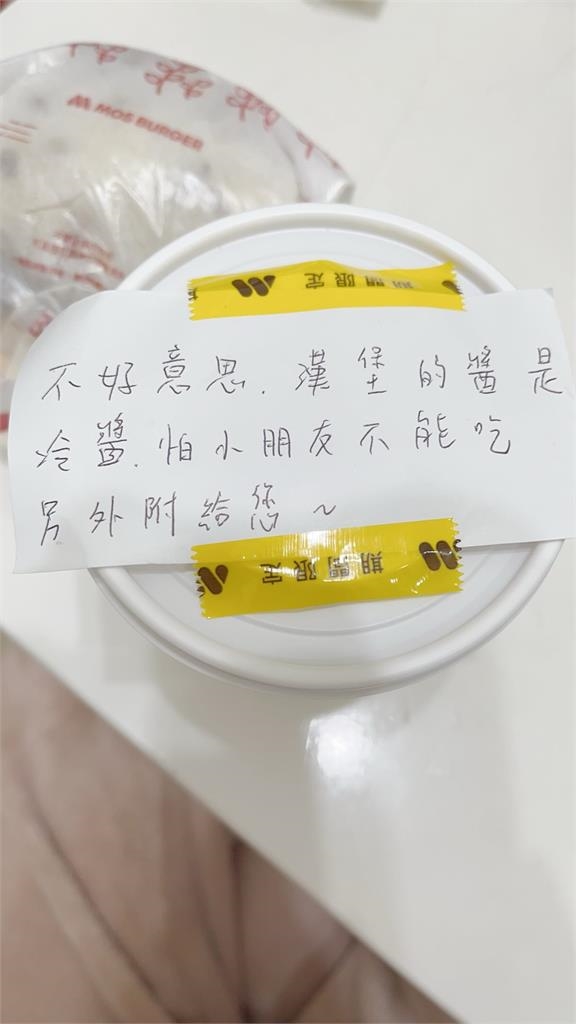 MOS BURGER
期間限定
不好意思. 漢堡的醬是
冷醬. 怕小朋友不能吃
另外附給您~
期間限定